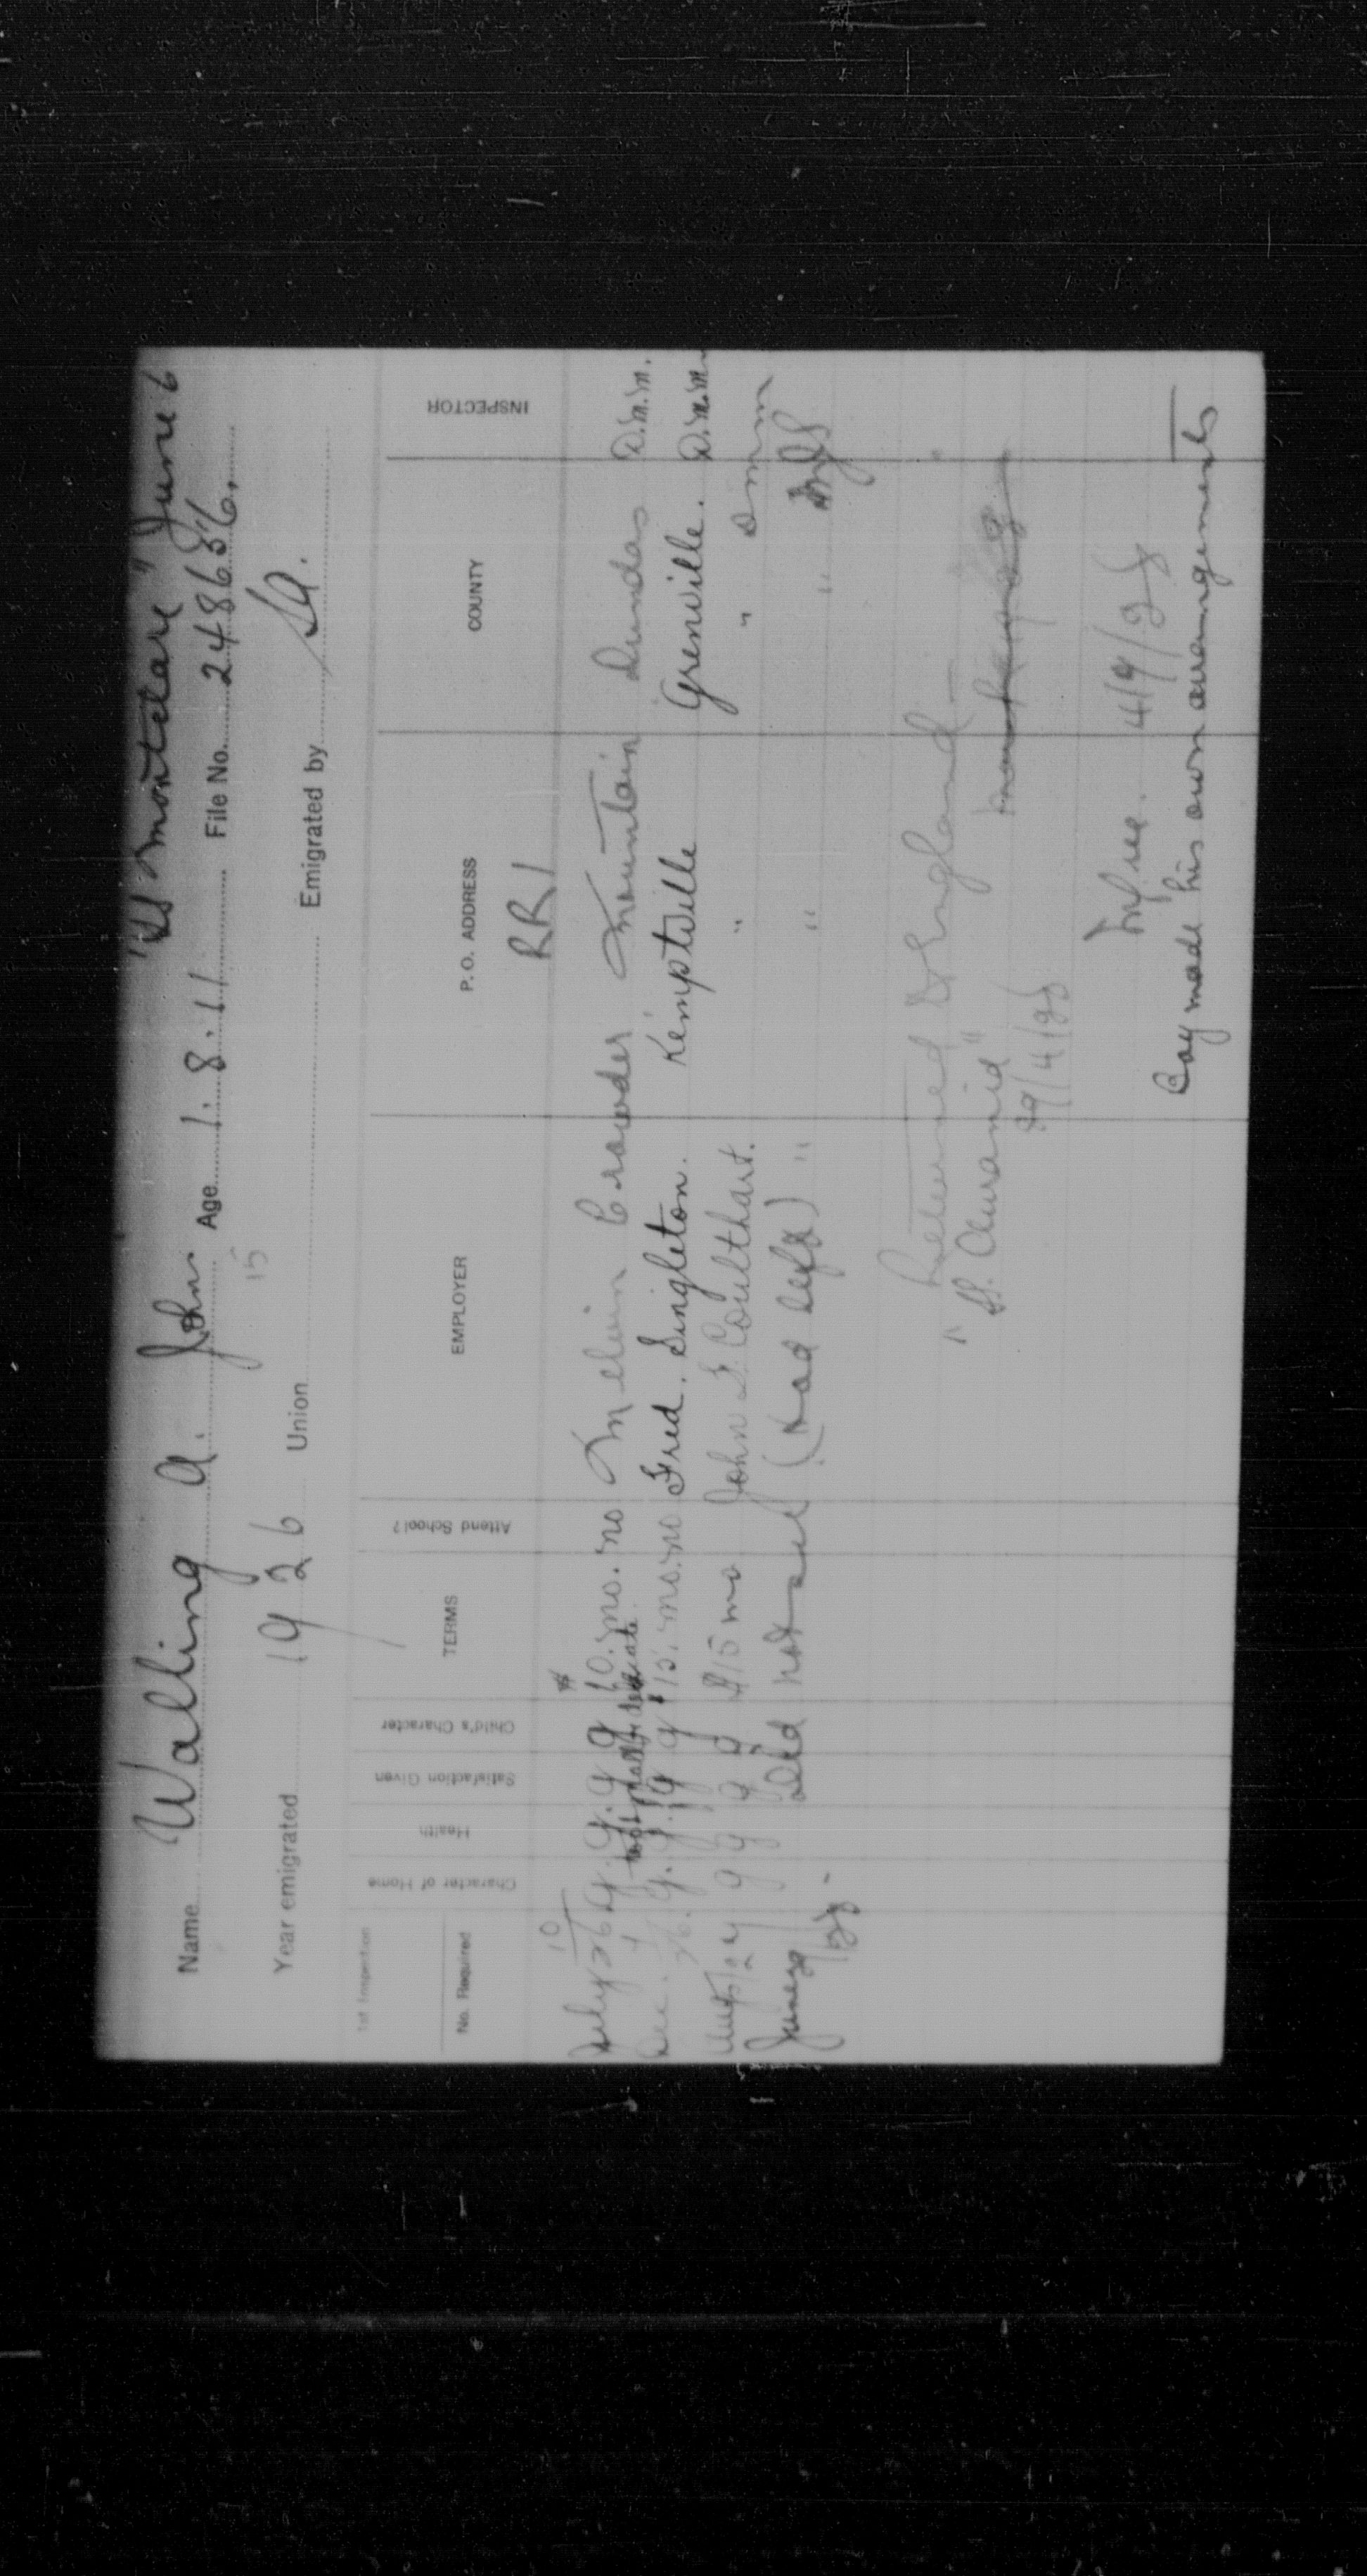 "SS Montclare" June 6
Name Walling A. John Age 1.8.11 File No. 248656.
15
Year emigrated 1926 Union Emigrated by S.A.
1st Inspection
No. Required Character of Home Health Satisfaction Given Child's Character TERMS Attend School? EMPLOYER P. O. ADDRESS COUNTY INSPECTOR
RR1
July 10/26 G. G. g g $10. mo. no Melvin Crowder Mountain Dundas D.M.M.
Dec. 26. G. g. g g $15. mo. no Fred. Singleton. Kemptville Grenville. D.M.M.
g g g g $15 mo John S. Coulthart. " " DMM
June 28 - Did not see (Had left) " " "
Returned to England -
"SS. Aurania"
4/9/28
Boy made his own arrangements